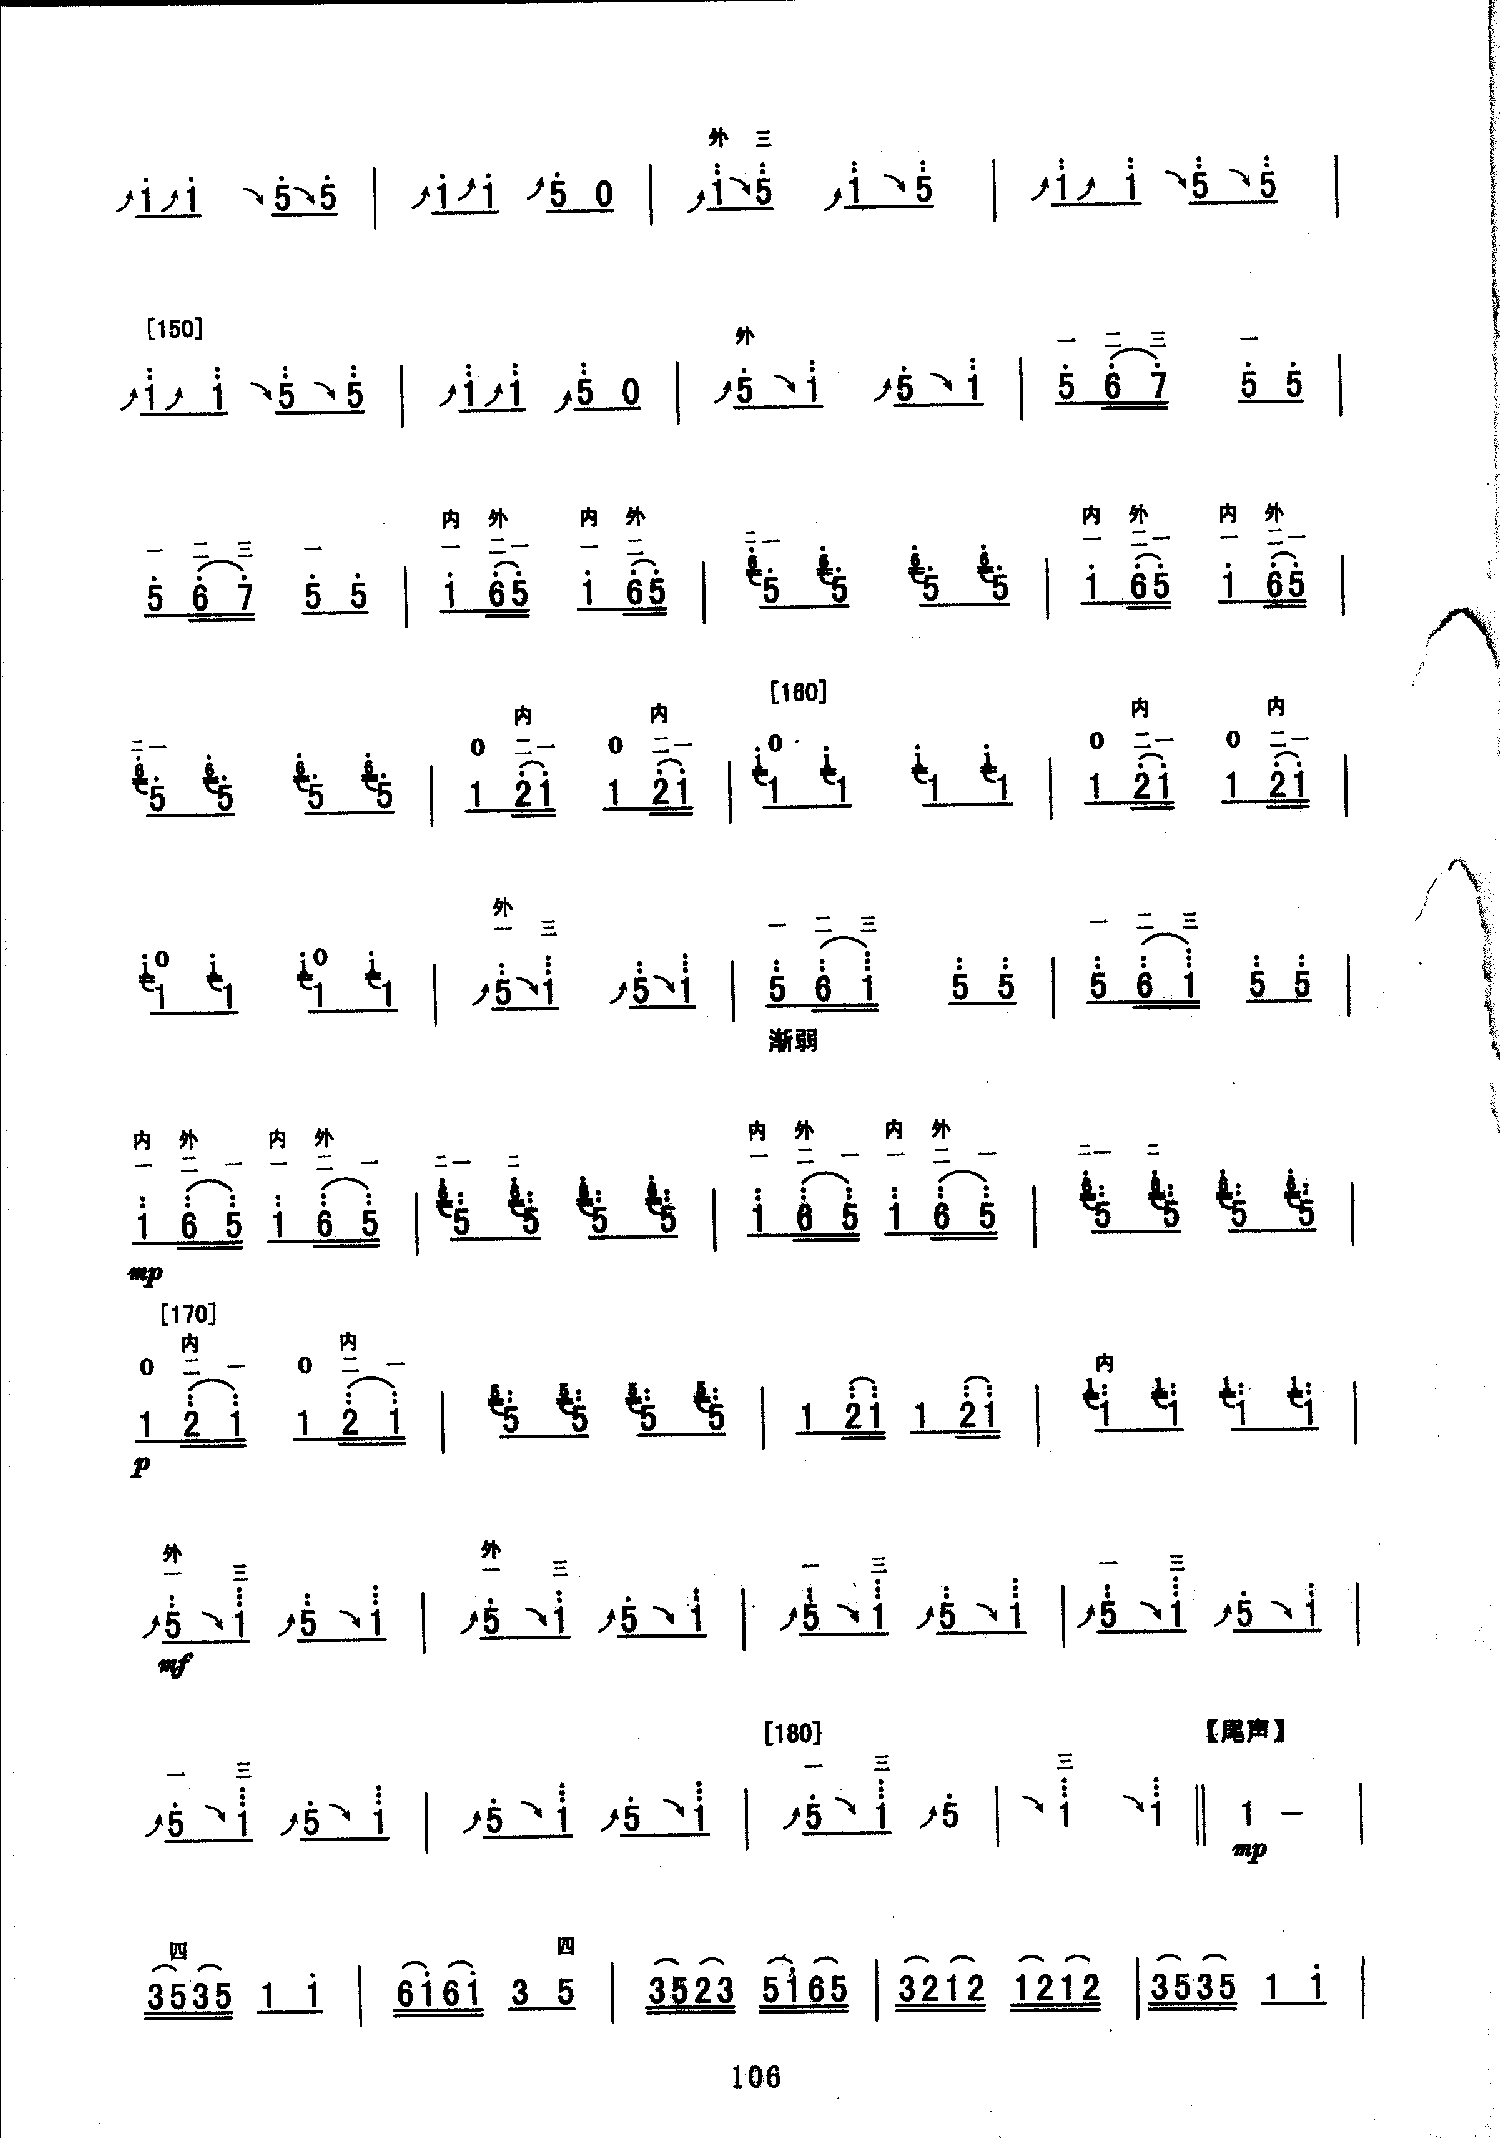 外 三
1 1 5 5 | 1 1 5 0 | 1 5 1 5 | 1 1 5 5 |
[150] 外 一 二 三 一
1 1 5 5 | 1 1 5 0 | 5 1 5 1 | 5 6 7 5 5 |
内 外 内 外 内 外 内 外
一 二 三 一 一 二一 一 二 二一 一 二一 一 二一
5 6 7 5 5 | 1 65 1 65 | 5 5 5 5 | 1 65 1 65 |
[160]
内 内 内 内
二一 0 二一 0 二一 0 0 二一 0 二一
5 5 5 5 | 1 21 1 21 | 1 1 1 1 | 1 21 1 21 |
外
0 0 一 三 一 二 三 一 二 三
1 1 1 1 | 5 1 5 1 | 5 6 1 5 5 | 5 6 1 5 5 |
渐弱
内 外 内 外 内 外 内 外
一 二 一 一 二 一 二一 二 一 二 一 一 二 一 二一 二
1 6 5 1 6 5 | 5 5 5 5 | 1 6 5 1 6 5 | 5 5 5 5 |
mp
[170]
内 内 内
0 二 一 0 二 一
1 2 1 1 2 1 | 5 5 5 5 | 1 21 1 21 | 1 1 1 1 |
p
外 外
一 三 一 三 一 三 一 三
5 1 5 1 | 5 1 5 1 | 5 1 5 1 | 5 1 5 1 |
mf
[180] 【尾声】
一 三 一 三 三
5 1 5 1 | 5 1 5 1 | 5 1 5 | 1 1 || 1 — |
mp
四 四
3535 1 1 | 6161 3 5 | 3523 5165 | 3212 1212 | 3535 1 1 |
106